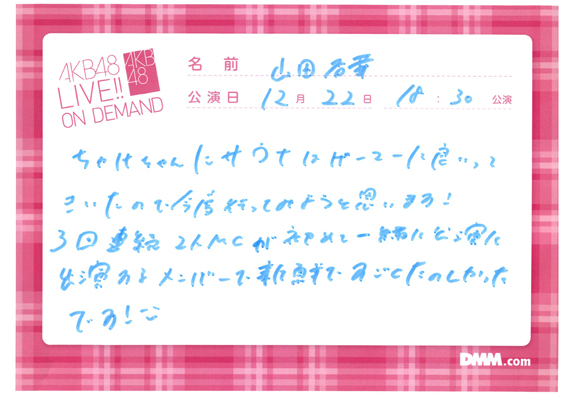 AKB48
LIVE!!
ON DEMAND
AKB
48
名前 山田杏華
公演日 12月22日 18:30 公演
ちゃけちゃんにサウナはゲーマーに良いって
きいたので今度行ってみようと思います!
3回連続2人MCが初めて一緒に公演に
出演するメンバーで新鮮ですごくたのしかった
です!
DMM.com